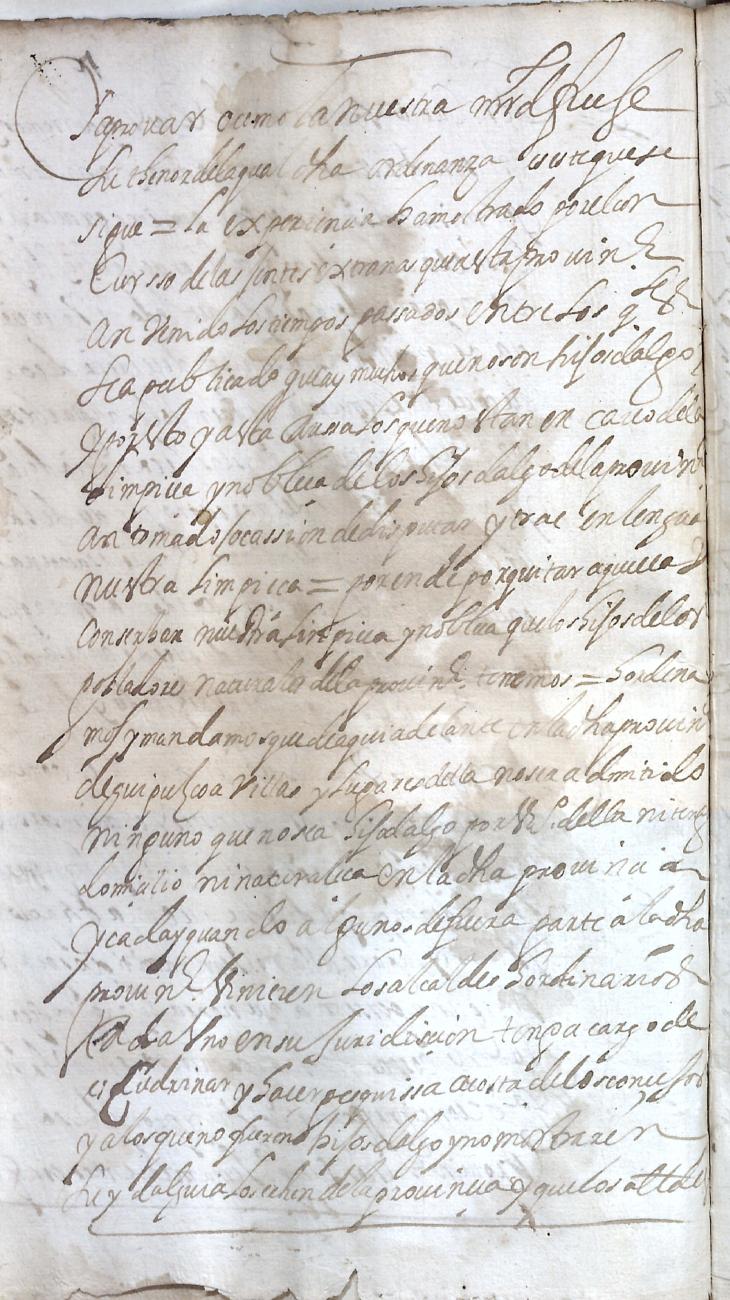 y aprovar o como la nuestra mrd fuese
su thenor de la qual dha ordenanza es este que se
sigue = la experiencia ha mostrado por el con
curso de las jentes extrañas que a esta provinª
an venido los tiempos passados entre los q̃
sea publicado que ay muchos que no son hijos dalgo
y por esto y a esta causa los que no estan en cauo de la
limpieça y nobleça de los hijos dalgo de la provinª
an tomado ocassion de disputar y traer en lengua
nuestra limpieça = por ende por quitar aquella y
conserbar nuestra limpieça y nobleça que los hijos de los
pobladores naturales de la provinª tenemos = hordena
mos y mandamos que de aqui adelante en la dha provinª
de guipuzcoa villas y lugares della no sea admitido
ninguno que no sea hijo dalgo por vº della ni tenga
domicilio ni naturaleça en la dha provincia
y cada y quando algunos de fuera parte a la dha
provinª vinieren los alcaldes hordinarios
cada uno en su juridicion tenga cargo de
escudriñar y hacer pesquissa a costa de los concejos
y a los que no fueren hijos dalgo y no mostraren
su ydalguia los echen de la provincia y que los alcaldes